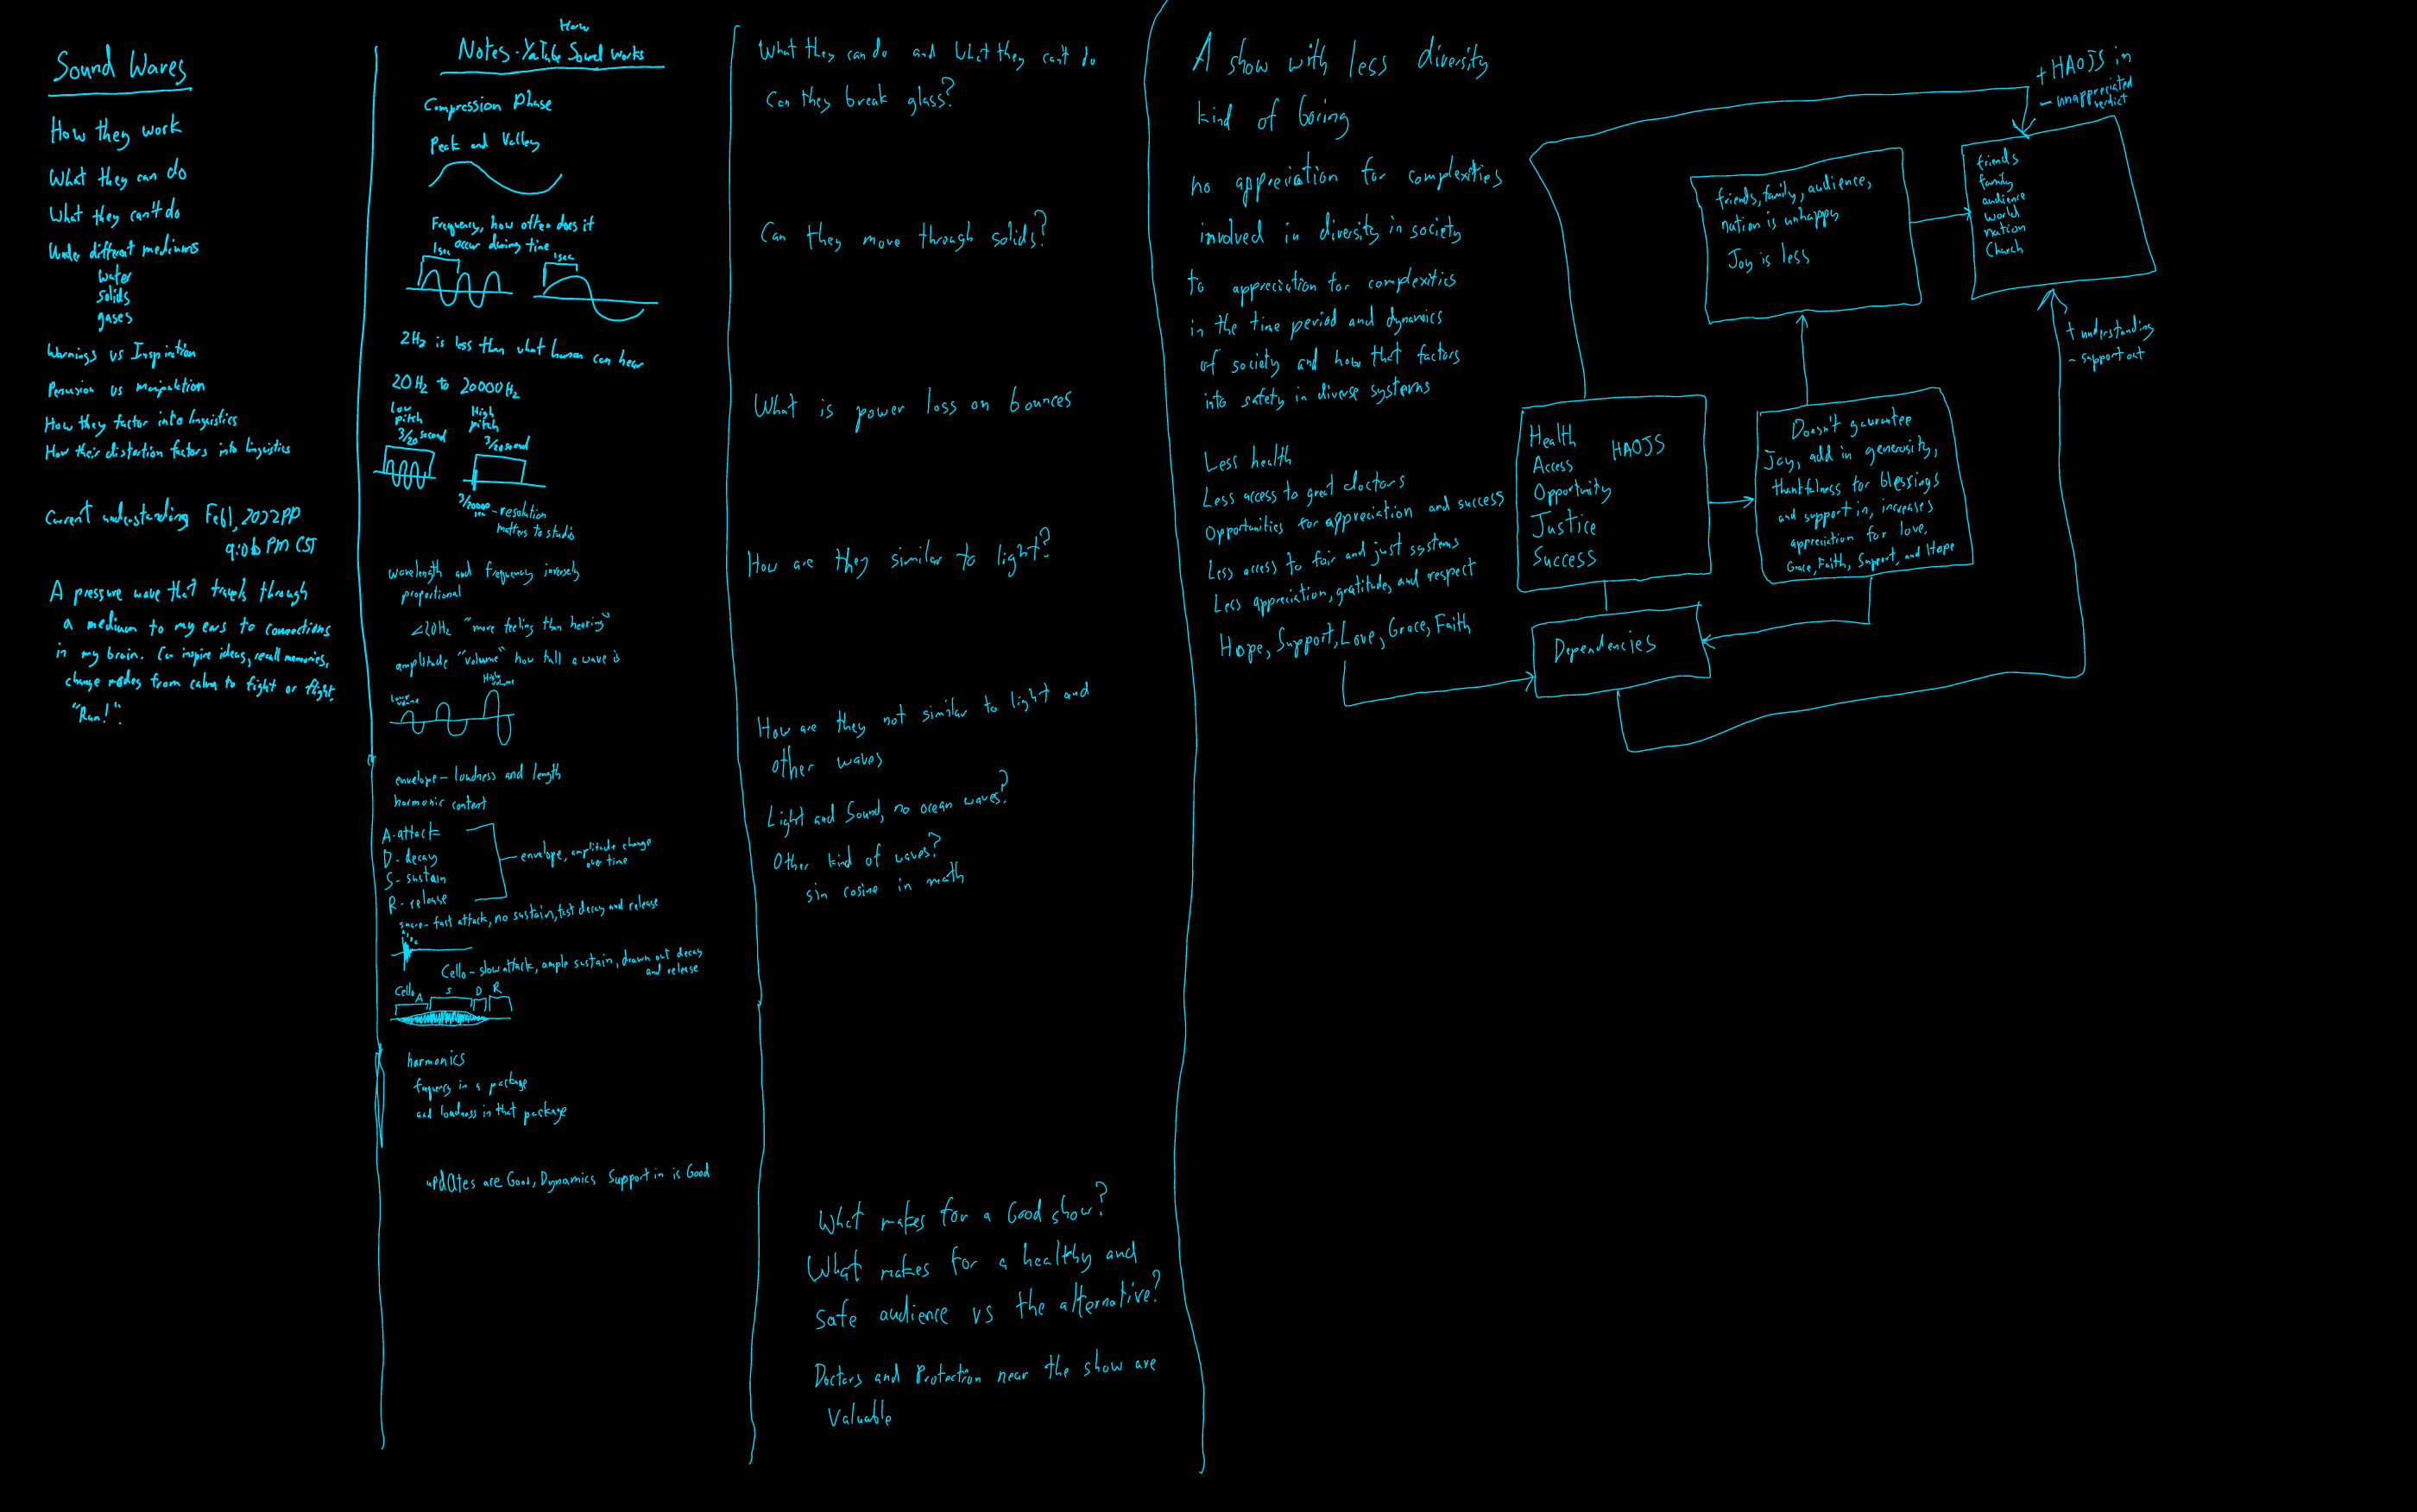 Sound Waves
How they work
What they can do
What they can't do
Under different mediums
water
solids
gases
Warnings vs Inspiration
Persuasion vs manipulation
How they factor into linguistics
How their distortion factors into linguistics
Current understanding Feb 1, 2022 PP
9:06 PM CST
A pressure wave that travels through
a medium to my ears to connections
in my brain. Can inspire ideas, recall memories,
change modes from calm to fight or flight,
"Run!".
How
Notes - YouTube Sound Works
Compression Phase
Peak and Valley
Frequency, how often does it
occur during time
1 sec
1 sec
2Hz is less than what human can hear
20Hz to 20000Hz
Low
pitch
3/20 second
High
pitch
3/20 second
3/20000
sec - resolution
matters to studio
wavelength and frequency inversely
proportional
<20Hz "more feeling than hearing"
amplitude "volume" how tall a wave is
Low
volume
High
volume
envelope - loudness and length
harmonic content
A - attack
D - decay
S - sustain
R - release
envelope, amplitude change
over time
snare - fast attack, no sustain, fast decay and release
Cello - slow attack, ample sustain, drawn out decay
and release
Cello A S D R
harmonics
frequency in a package
and loudness in that package
updates are Good, Dynamics Support in is Good
What they can do and What they can't do
Can they break glass?
Can they move through solids?
What is power loss on bounces
How are they similar to light?
How are they not similar to light and
other waves
Light and Sound, no ocean waves?
Other kind of waves?
sin cosine in math
What makes for a Good show?
What makes for a healthy and
safe audience vs the alternative?
Doctors and Protection near the show are
Valuable
A show with less diversity
kind of boring
no appreciation for complexities
involved in diversity in society
to appreciation for complexities
in the time period and dynamics
of society and how that factors
into safety in diverse systems
Less health
Less access to great doctors
Opportunities for appreciation and success
Less access to fair and just systems
Less appreciation, gratitude, and respect
Hope, Support, Love, Grace, Faith
Health
Access
Opportunity
Justice
Success
HAOJS
Dependencies
Doesn't gaurantee
Joy, add in generosity,
thankfulness for blessings
and support in, increases
appreciation for love,
Grace, Faith, Support, and Hope
friends, family, audience,
nation is unhappy
Joy is less
friends
family
audience
world
nation
Church
+ HAOJS in
- unappreciated
verdict
+ understanding
- support out